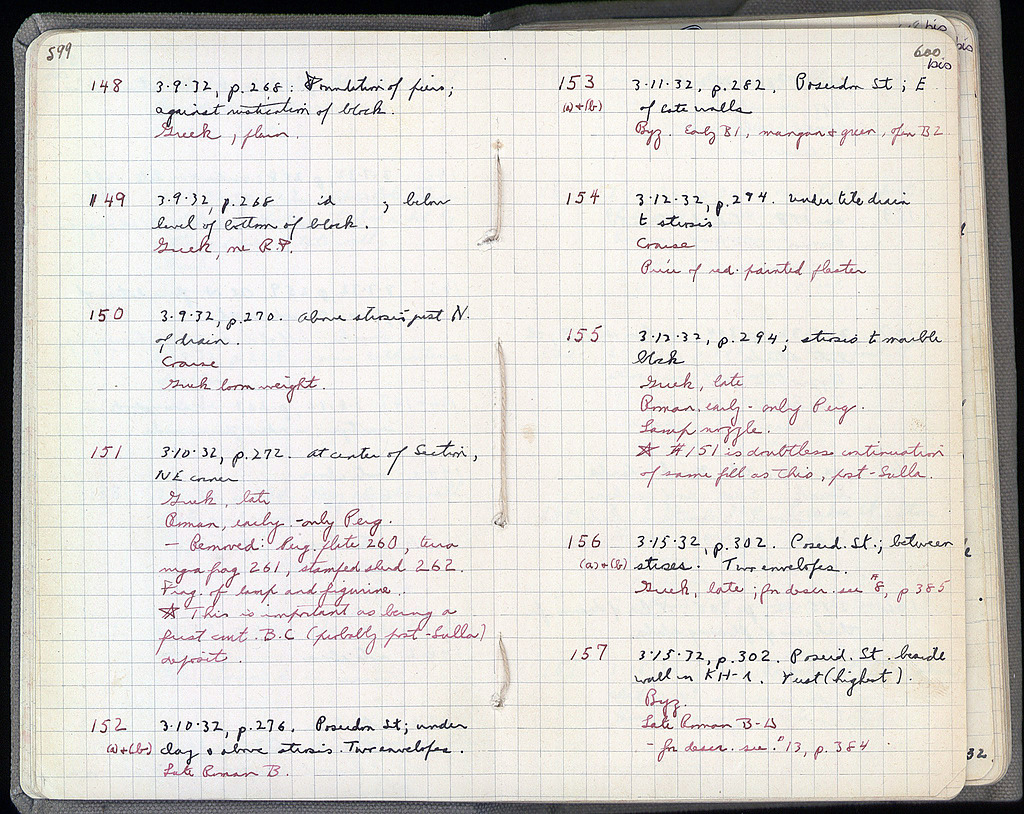 599
148 3·9·32, p. 268: Foundation of piers;
against rustication of block.
Greek, plain.
149 3·9·32, p. 268 id ; below
level of bottom of block.
Greek, no R.F.
150 3·9·32, p. 270. above stosis just N.
of drain.
Coarse
Greek loom weight.
151 3·10·32, p. 272. at center of Section,
NE corner
Greek, late
Roman, early - only Perg.
- Removed: Perg. plate 260, terra
nigra frag 261, stamped sherd 262.
Frag. of lamp and figurine.
☆ This is important as being a
first cent. B.C (probably post-Sulla)
deposit.
152 3·10·32, p. 276. Poseidon St; under
(a)+(b) clay & above strosis. Two envelopes.
Late Roman B.
600
bis
153 3·11·32, p. 282. Poseidon St; E
(a)+(b) of late walls
Byz. Early B1, mangan & green, few B2
154 3·12·32, p. 294. under tile drain
to strosis
Coarse
Piece of red-painted plaster
155 3·12·32, p. 294; strosis to marble
block
Greek, late
Roman, early - only Perg.
Lamp nozzle.
☆ #151 is doubtless continuation
of same fill as this, post-Sulla.
156 3·15·32, p. 302. Poseid. St.; between
(a)+(b) stroses. Two envelopes.
Greek, late; for descr. see #8, p 385
157 3·15·32, p. 302. Poseid. St. beside
wall in KH-1. Vest (highest).
Byz.
Late Roman B-D
- for descr. see #13, p. 384
bis
bis
32.